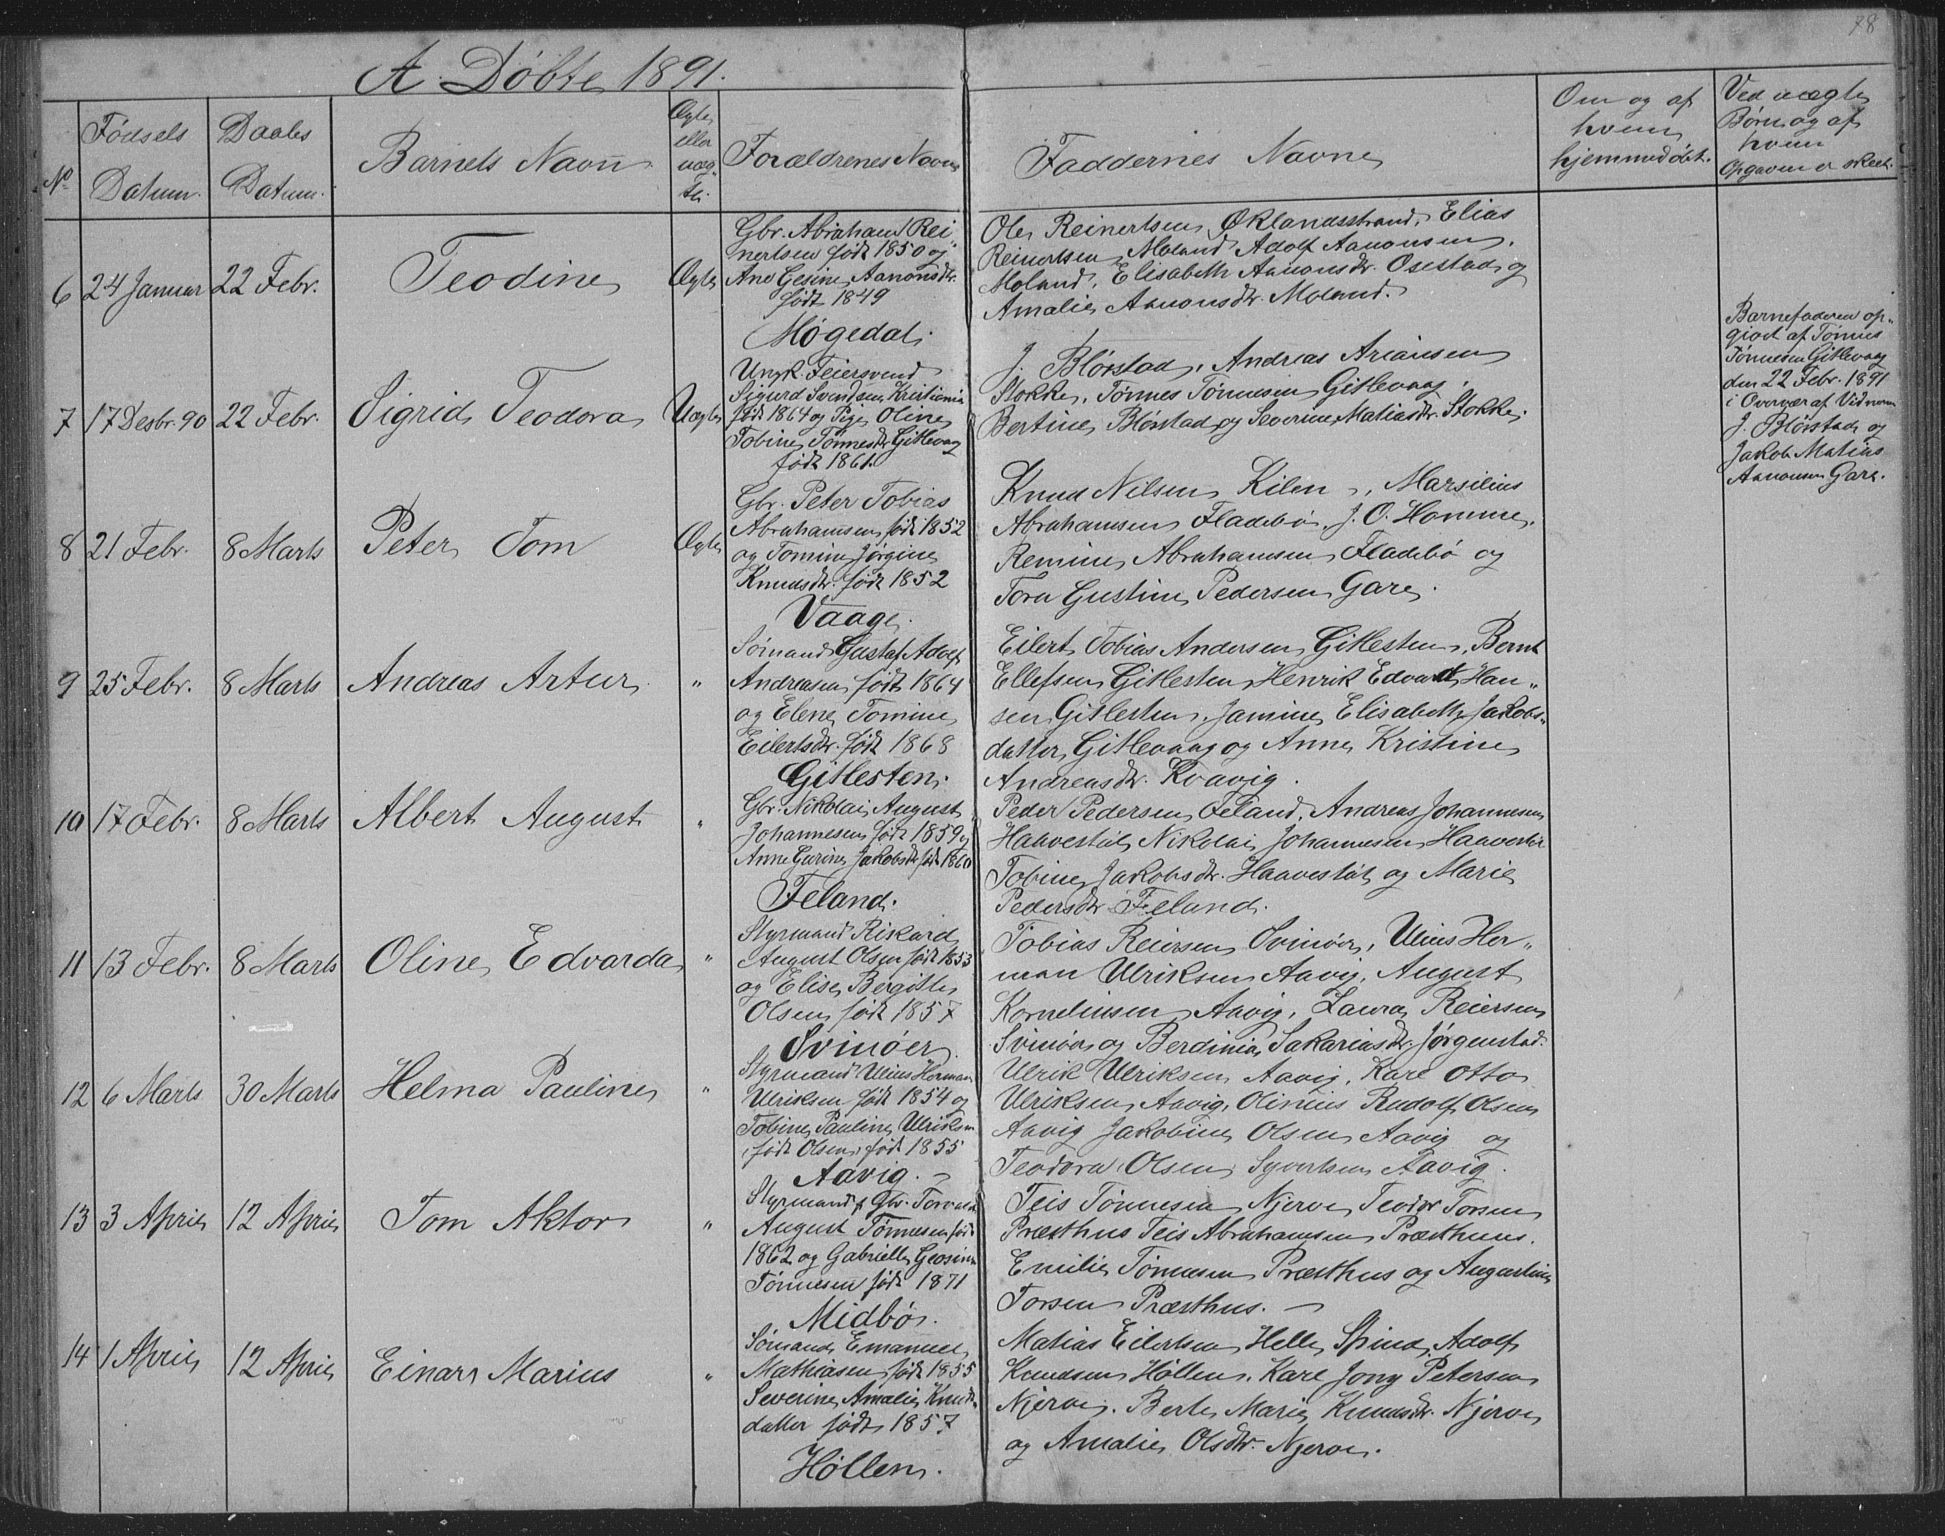 78
A. Døbte 1891.
No
Fødsels Datum.
Daabs Datum.
Barnets Navn
Ægte eller uæg- te.
Forældrenes Navne
Faddernes Navne
Om og af hvem hjemmedøbt.
Ved uægte Børn og af hvem Opgaven er skeet.
6 24 Januar 22 Febr. Teodine Ægte
Gbr. Abraham Rei
nertsen født 1850 og
Ane Gesine Aanonsdtr.
født 1849
Møgedal.
Ole Reinertsen Øklandsstrand, Elias
Reinertsen Moland Adolf Aanonsen,
Moland, Elisabeth Aanonsdtr. Osestad og
Amalie Aanonsdtr. Moland.
7 17 Desbr. 90 22 Febr. Sigrid Teodora Uægte
Ungk. Feiersvend
Sigurd Svendsen Kristiania
født 1864 og Pige Oline
Tobine Tønnesdtr. Gitlevaag
født 1861.
J. Blørstad, Andreas Ariansen
Stokke, Tønnes Tønnesen Gitlevaag,
Bertine Blørstad og Severine Matiasdtr. Stokke.
Barnefaderen op-
givet af Tønnes
Tønnesen Gitlevaag
den 22 Febr. 1891
i Overvær af Vidnerne
J. Blørstad og
Jakob Matias
Aanonsen Gare.
8 21 Febr. 8 Marts Peter Tom Ægte
Gbr. Peter Tobias
Abrahamsen født 1852
og Tomine Jørgine
Knudsdtr. født 1852
Vaage.
Knud Nilsen Kilen, Marsilius
Abrahamsen Fladebø, J. O. Homme,
Remine Abrahamsen Fladebø og
Tora Gustine Pedersen Gare.
9 25 Febr. 8 Marts Andreas Artur "
Sømand Gustaf Adolf
Andreasen født 1864
og Elene Tomine
Eilertsdtr. født 1868
Gitlesten.
Eilert Tobias Andersen Gitlesten, Bernt
Ellefsen Gitlesten Henrik Edvardt Han-
sen Gitlesten, Jamine Elisabeth Jakobs-
datter Gitlevaag og Anne Kristine
Andreasdtr. Kvavig.
10 17 Febr. 8 Marts Albert August "
Gbr. Nikolai August
Johannesen født 1859 og
Anne Gurine Jakobsdtr. født 1860
Feland.
Peder Pedersen Feland, Andreas Johannesen
Haavestøl Nikolai Johannesen Haavestøl
Tobine Jakobsdtr. Haavestøl og Marie
Pedersdtr Feland.
11 13 Febr. 8 Marts Oline Edvarda "
Styrmand Rikard
August Olsen født 1853
og Elise Bergitte
Olsen født 1857
Svinøer.
Tobias Reiersen Svinøer, Ulius Her-
man Ulriksen Aavig, August
Korneliusen Aavig, Laura Reiersen
Svinøer og Berdinia Sakariasdtr. Jørgenstad.
12 6 Marts 30 Marts Helma Pauline "
Styrmand Ulius Herman
Ulriksen født 1854 og
Tobine Pauline Ulriksen
født Olsen født 1855
Aavig.
Ulrik Ulriksen Aavig, Karl Otto
Ulriksen Aavig, Olinius Rudolf Olsen
Aavig Jakobine Olsen Aavig og
Teodora Olsen Syvertsen Aavig.
13 3 April 12 April Tom Aktor "
Styrmand & Gbr. Torvald
August Tønnesen født
1862 og Gabrielle Geosine
Tønnesen født 1871
Midbø.
Teis Tønnesen Njerve Teodor Torsen
Præsthus Teis Abrahamsen Præsthus.
Emilie Tønnesen Præsthus og Augustine
Torsen Præsthus.
14 1 April 12 April Einar Marius "
Sømand Emanuel
Mathiasen født 1855
Severine Amalie Knuds-
datter født 1857
Høllen.
Matias Eilertsen Helle Spind, Adolf
Knudsen Høllen, Karl Jony Petersen
Njerve. Berte Marie Knudsdtr. Njerve
og Amalie Olsdtr. Njerve.